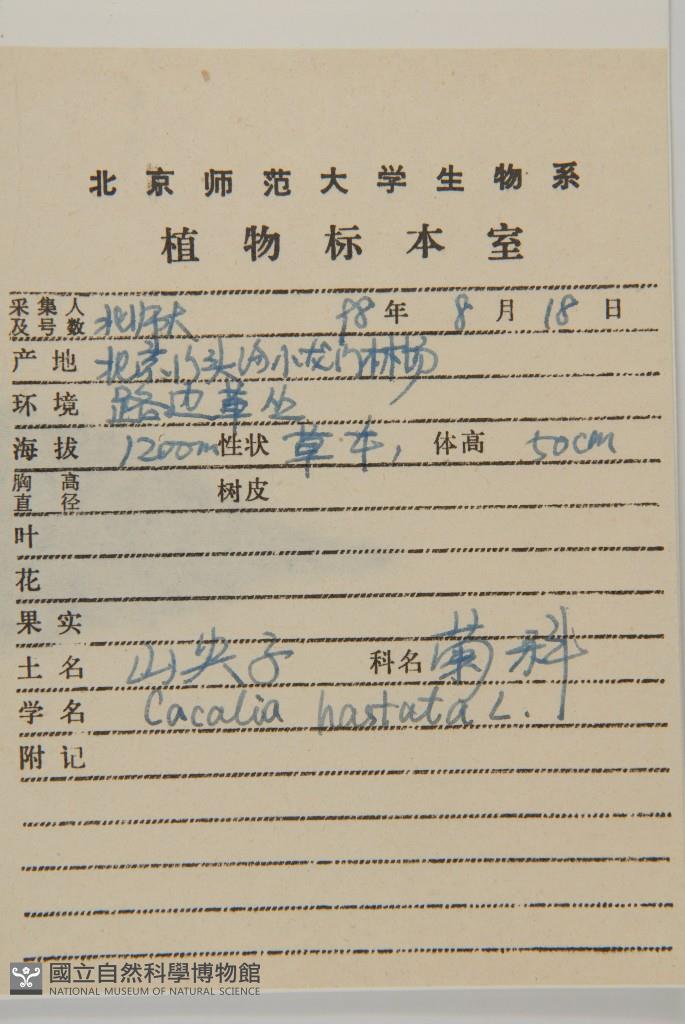 北京师范大学生物系
植物标本室
采集人及号数 北师大 98年 8月 18日
产地 北京门头沟小龙门林场
环境 路边草丛
海拔 1200m 性状 草本, 体高 50cm
胸高直径 树皮
叶
花
果实
土名 山尖子 科名 菊科
学名 Cacalia hastata L.
附记
國立自然科學博物館
NATIONAL MUSEUM OF NATURAL SCIENCE